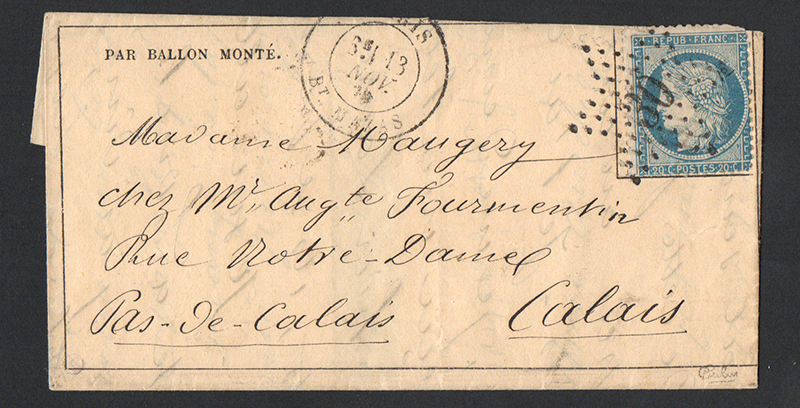 PAR BALLON MONTÉ.
13
NOV.
REPUB. FRANC.
20.C.POSTES.20.C.
Madame Maugery
chez Mr. Augte Fourmentin
Rue Notre-Dame
Pas-de-Calais Calais